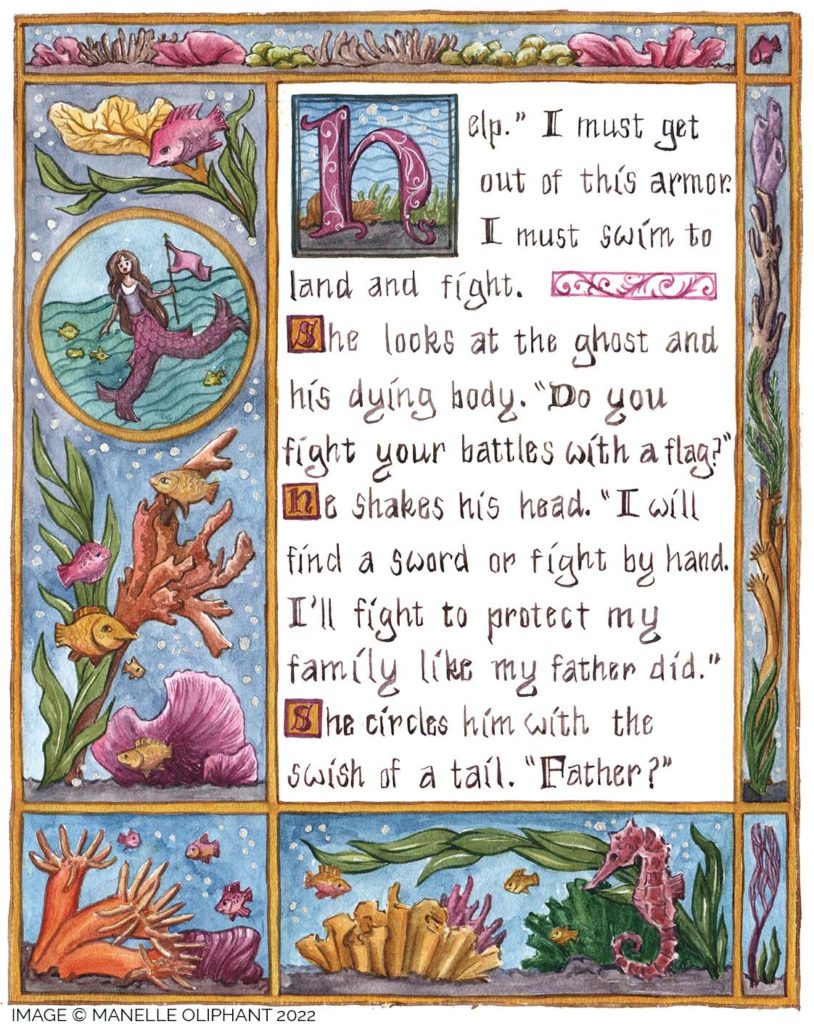 help." I must get
out of this armor.
I must swim to
land and fight.
She looks at the ghost and
his dying body. "Do you
fight your battles with a flag?"
He shakes his head. "I will
find a sword or fight by hand.
I'll fight to protect my
family like my father did."
She circles him with the
swish of a tail. "Father?"
IMAGE © MANELLE OLIPHANT 2022